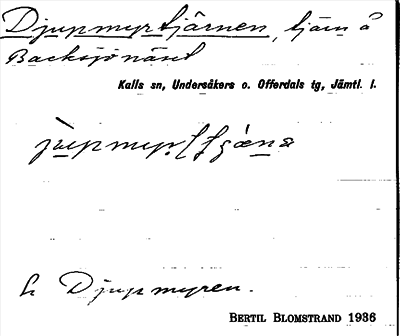 Djupmyrtjärnen, tjärn å
Backsjönäset
Kalls sn, Undersåkers o. Offerdals tg, Jämtl. l.
h Djupmyren.
BERTIL BLOMSTRAND 1936